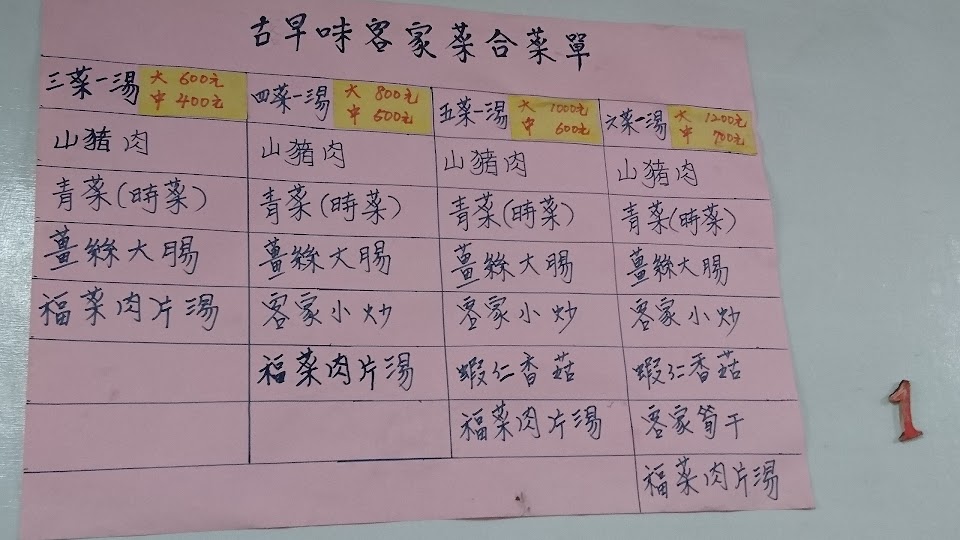 古早味客家菜合菜單
三菜一湯
大 600元
中 400元
山豬肉
青菜(時菜)
薑絲大腸
福菜肉片湯
四菜一湯
大 800元
中 500元
山豬肉
青菜(時菜)
薑絲大腸
客家小炒
福菜肉片湯
五菜一湯
大 1000元
中 600元
山豬肉
青菜(時菜)
薑絲大腸
客家小炒
蝦仁香菇
福菜肉片湯
六菜一湯
大 1200元
中 700元
山豬肉
青菜(時菜)
薑絲大腸
客家小炒
蝦仁香菇
客家筍干
福菜肉片湯
1